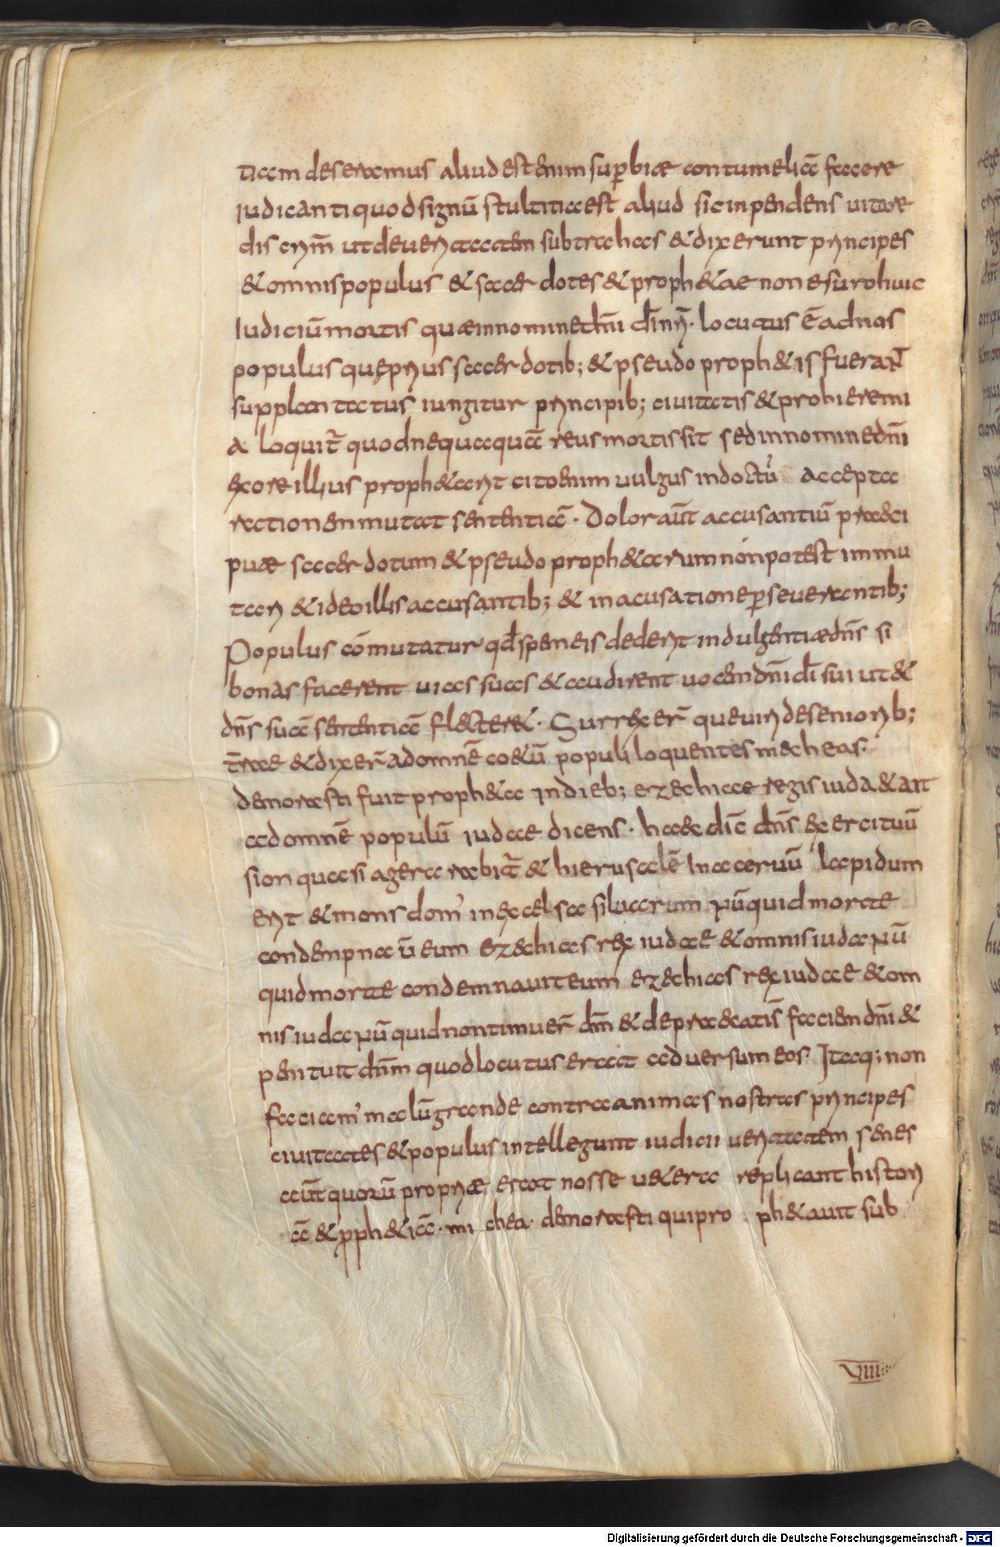 tiam deseramus aliud est enim superbiae contumeliā facere
iudicanti quod signū stultitiae est aliud sic inpendens vitare
discrym̄ ut de veritatem subtrahas & dixerunt principes
& omnis populus & sacer dotes & proph&ae non est uiro huic
Iudiciū mortis quia in nomine dn̄i dī nr̄i · locutus ē ad nos
populus quę prius sacer dotib; & pseudo proph&is fuerat
supplantatus iungitur principib; civitatis & pro hieremi
a loquit̄ quod nequaquā reus mortis sit sed in nomine dn̄i
ex ore illius proph&arit cito enim vulgus indoctū accepta
ration en mutat sententiā · Dolor aūt accusantiū praeci
puae sacer dotum & pseudo proph&arum nón potest immu
tari & ideo illis accusantib; & in acusatione p̄severantib;
Populus cōmutatur qd̄ spem eis dederit indulgentiae dn̄s si
bonas facerent vias suas & audirent vocem dn̄i dī sui ut &
dn̄s suā sententiā flecteret · Surrexer̄ que viri de seniorib;
t̄rae & dixer̄ ad omnē coetū populi loquentes micheas ·
demorasti fuit proph&a in dieb; ezechiae regis iuda & ait
ad omnē populū iudae dicens · haec dic̄ dn̄s exercituū
sion quasi ager arabit̄ & hierusalē In acervū lapidum
erit & mons dom' in excelsa silvarum nū quid morte
condempna v̄ eum ezechias rex iudae & omnis iuda nū
quid morte condemnavit eum ezechias rex iudae & om
nis iuda nū quid non timuer̄ dn̄m & deprecatis faciem dn̄i &
penituit dn̄m quod locutus erat adversum eos · Itaq; non
faciam' malū grande contra animas nostras principes
civitates & populus intellegunt iudicii veritatem senes
aūt quorū propriae erat nosse v&era replicant histori
ā & pph&iā · mi chea · demorasti qui pro ph&avit sub
VIIII
Digitalisierung gefördert durch die Deutsche Forschungsgemeinschaft - DFG